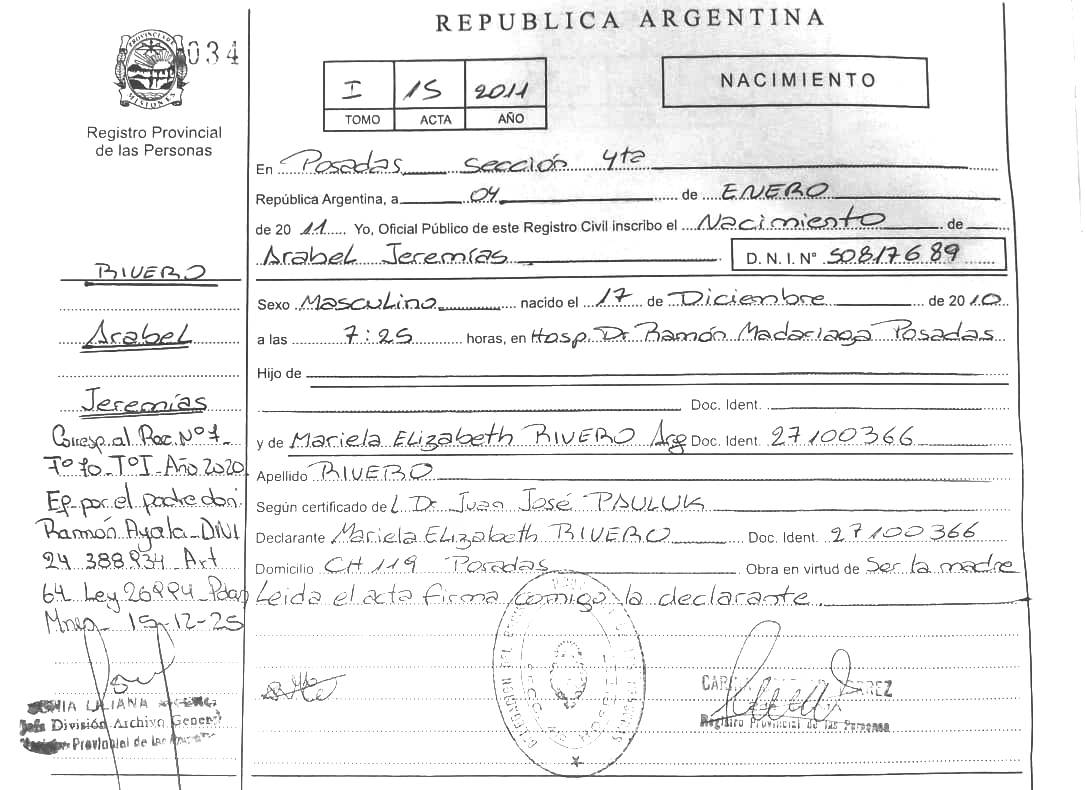 REPUBLICA ARGENTINA
PROVINCIA DE MISIONES
034
Registro Provincial
de las Personas
I 15 2011
TOMO ACTA AÑO
NACIMIENTO
En Posadas sección 4ta
República Argentina, a 04 de ENERO
de 2011 Yo, Oficial Público de este Registro Civil inscribo el Nacimiento de
Arabel Jeremías D. N. I. N° 50817689
Sexo Masculino nacido el 17 de Diciembre de 2010
a las 7:25 horas, en Hosp. Dr Ramón Madariaga Posadas
Hijo de
Doc. Ident.
y de Mariela Elizabeth RIVERO Arg Doc. Ident. 27100366
Apellido RIVERO
Según certificado de Dr. Juan José PAULUK
Declarante Mariela Elizabeth RIVERO Doc. Ident. 27100366
Domicilio CH 119 Posadas Obra en virtud de Ser la madre
Leida el acta firma comigo la declarante.
RIVERO
Arabel
Jeremías
Corresp. al Rec. N° 1
F° 10 T° I Año 2020
Ef. por el padre don:
Ramón Ayala DNI
24 388.934 Art
64 Ley 26994
15-12-25
LILIANA
Jefe División Archivo General
Provincial de las
Registro Provincial de las Personas